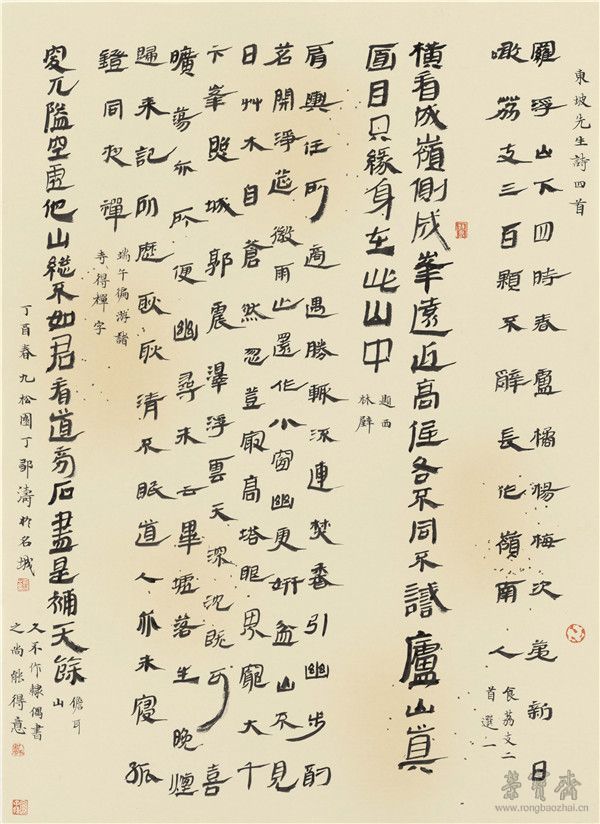 東坡先生詩四首
羅浮山下四時春盧橘楊梅次苐新日
噉荔支三百顆不辭長作嶺南人
食荔支二
首選一
橫看成嶺側成峯遠近高低各不同不識廬山真
面目只緣身在此山中
題西
林壁
肩輿任所適遇勝輒流連焚香引幽步酌
茗開淨筵微雨止還作小窗幽更妍盆山不見
日艸木自蒼然忽登最高塔眼界窮大千
卞峯照城郭震澤浮雲天深沈既可喜
曠蕩亦所便幽尋未云畢墟落生晚煙
歸來記所歷耿耿清不眠道人亦未寢孤
鐙同夜禪
端午徧游諸
寺得禪字
突兀隘空虛他山總不如君看道旁石盡是補天餘
儋耳
山
丁酉春九松園丁鄒濤於名城
久不作隸偶書
之尚能得意
榮寶齋
www.rongbaozhai.cn